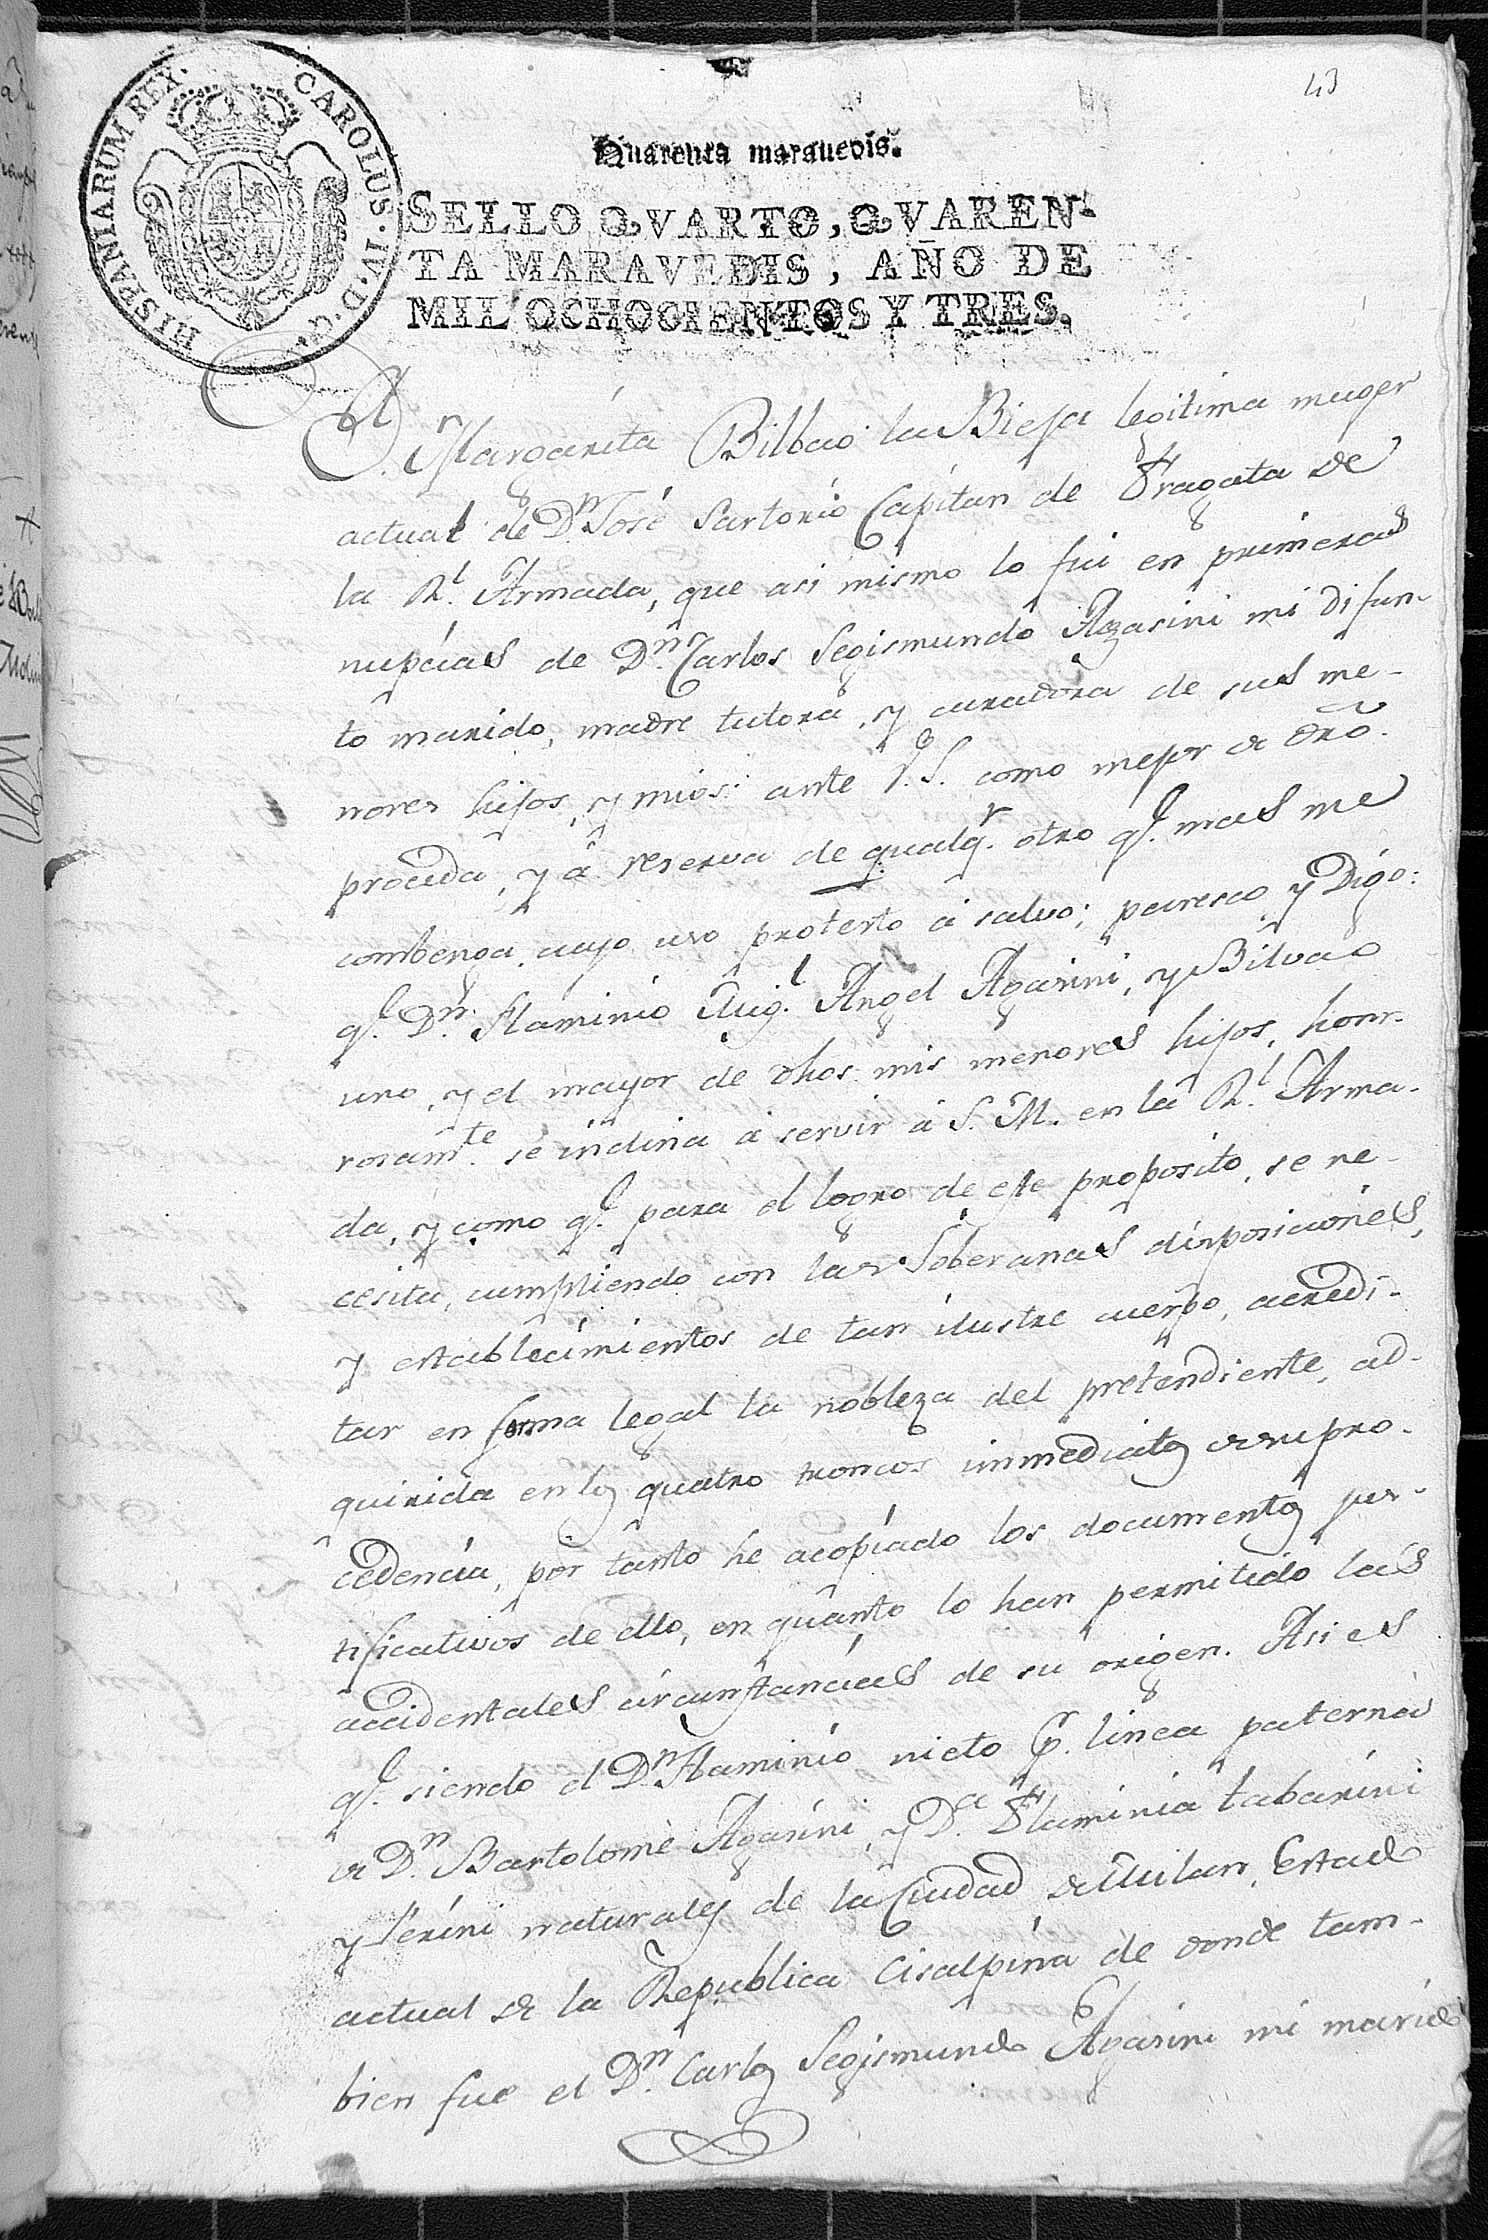 43
HISPANIARUM REX. CAROLUS. IV. D. G.
Quarenta marauedis.
SELLO QVARTO, QVAREN-
TA MARAVEDIS, AÑO DE
MIL OCHOCIENTOS Y TRES.
D.ª Margarita Bilbao la Bieja legitima muger
actual de D.n José Sartorio Capitan de Fragata de
la R.l Armada, que asi mismo lo fui en primeras
nupcias de D.n Carlos Segismundo Agasini mi difun-
to marido, madre tutora, y curadora de sus me-
nores hijos, y mios: ante V.S. como mejor de dro.
proceda, y â reserva de qualq.r otro q.e mas me
combenga, cuyo uso protesto à salvo; paresco y Digo:
q.e D.n Flaminio Mig.l Angel Agasini, y Bilvao
uno, y el mayor de dhos mis menores hijos, honr-
rosam.te se inclina à servir à S. M. en la R.l Arma-
da, y como q.e para el logro de este proposito, se ne-
cesita, cumpliendo con las Soberanas disposiciones,
y establecimientos de tan ilustre cuerpo, acredi-
tar en forma legal la nobleza del pretendiente, ad-
quirida en los quatro troncos immediatos de su pro-
cedencia, por tanto he acopiado los documentos jus-
tificativos de ello, en quanto lo han permitido las
accidentales circunstancias de su origen. Asi es
q.e siendo el D.n Flaminio nieto p.r linea paterna
de D.n Bartolomé Agasini, y D.ª Flaminia Tabarini
y Perini naturales de la Ciudad de Milan, Estado
actual de la Republica Cisalpina de donde tam-
bien fue el D.n Carlos Segismundo Agasini mi marido